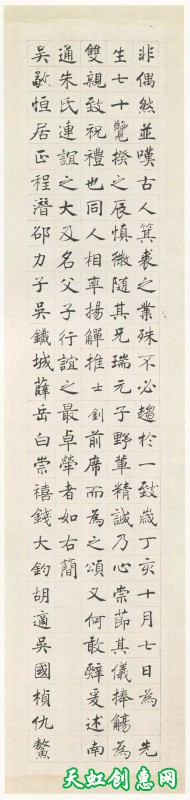 非偶然並嘆古人箕裘之業殊不必趨於一致歲丁亥十月七日為先
生七十覽揆之辰慎微随其兄瑞元子野輩精誠乃心崇節其儀捧觴為
雙親致祝禮也同人相率揚觶推士釗前席而為之頌又何敢辭爰述南
通朱氏連誼之大及名父子行誼之最卓犖者如右簡
吳敬恒居正程潛邵力子吳鐵城薛岳白崇禧錢大鈞胡適吳國楨仇鰲
天虹创惠网